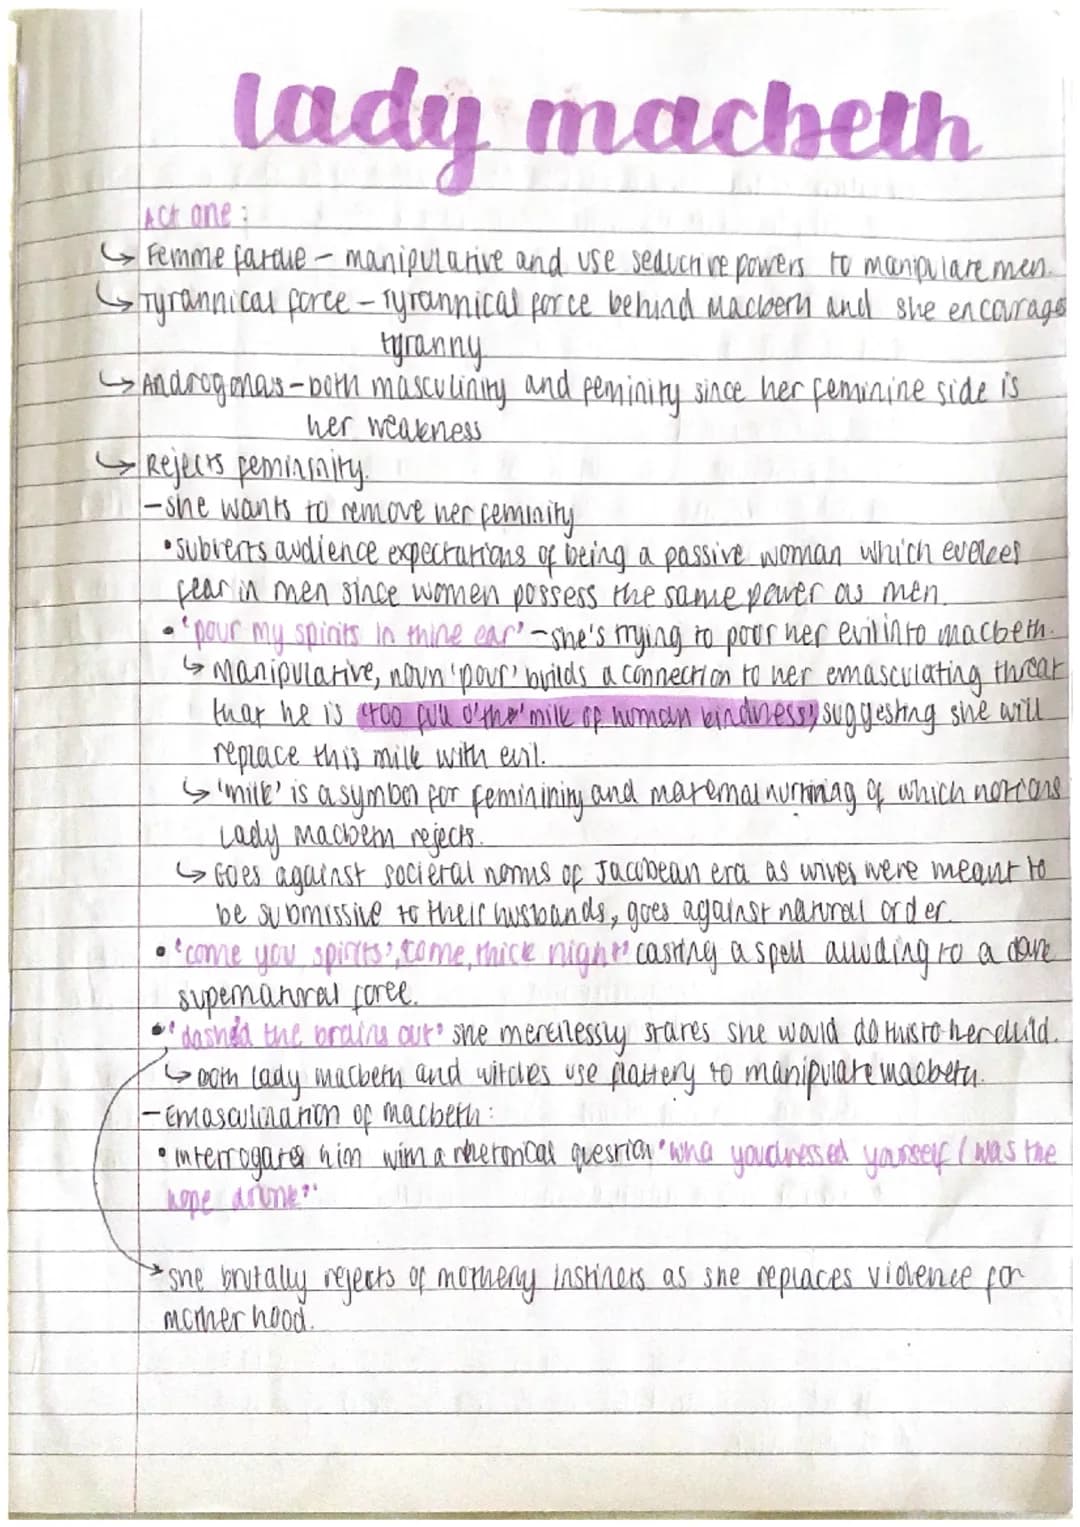 lady macbeth
Act one:
↳ Femme fatale – manipulative and use seductive powers to manipulate men.
↳ Tyrannical force – Tyrannical force behind Macbeth and she encourages
tyranny
↳ Androgonas – both masculinity and feminity since her feminine side is
her weakness
↳ Rejects femininity.
– she wants to remove her feminity
• subverts audience expectations of being a passive woman which evokes
fear in men since women possess the same power as men.
• 'pour my spirits in thine ear' – she's trying to poor her evil into macbeth.
↳ Manipulative, noun 'pour' builds a connection to her emasculating threat
that he is 'too full o'the' milk of human kindness', suggesting she will
replace this milk with evil.
↳ 'milk' is a symbol for femininity and maternal nurturing of which
Lady Macbeth rejects.
↳ Goes against societal norms of Jacobean era as wives were meant to
be submissive to their husbands, goes against natural order.
• 'come you spirits', 'come, thick night' casting a spell alluding to a dark
supernatural force.
• 'dashed the brains out' she mercilessly states she would do this to her child.
↳ both lady macbeth and witches use flattery to manipulate macbeth.
– Emasculination of macbeth:
• interrogates him with a rhetorical question 'wha you dressed yourself / was the
hope drunk?'
she brutally rejects of motherly instincts as she replaces violence for
motherhood.